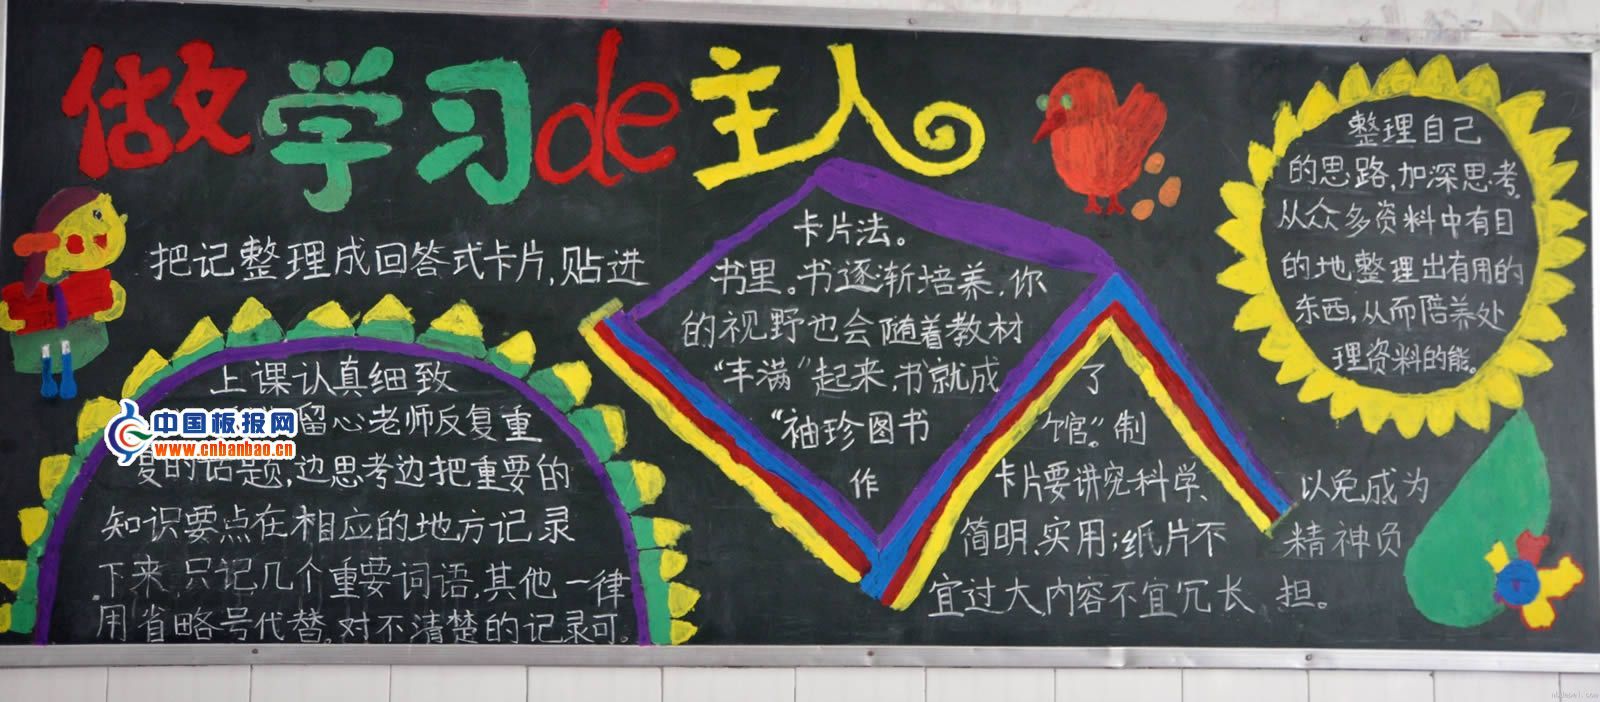 做学习de主人
把记整理成回答式卡片,贴进
上课认真细致
留心老师反复重
复的话题,边思考边把重要的
知识要点在相应的地方记录
下来,只记几个重要词语,其他一律
用省略号代替。对不清楚的记录可。
卡片法。
书里。书逐渐培养,你
的视野也会随着教材
“丰满”起来,书就成 了
“袖珍图书 馆”。制
作 卡片要讲究科学、 以免成为
简明、实用;纸片不 精神负
宜过大,内容不宜冗长 担。
整理自己
的思路,加深思考。
从众多资料中有目
的地整理出有用的
东西,从而陪养处
理资料的能。
中国板报网
www.cnbanbao.cn